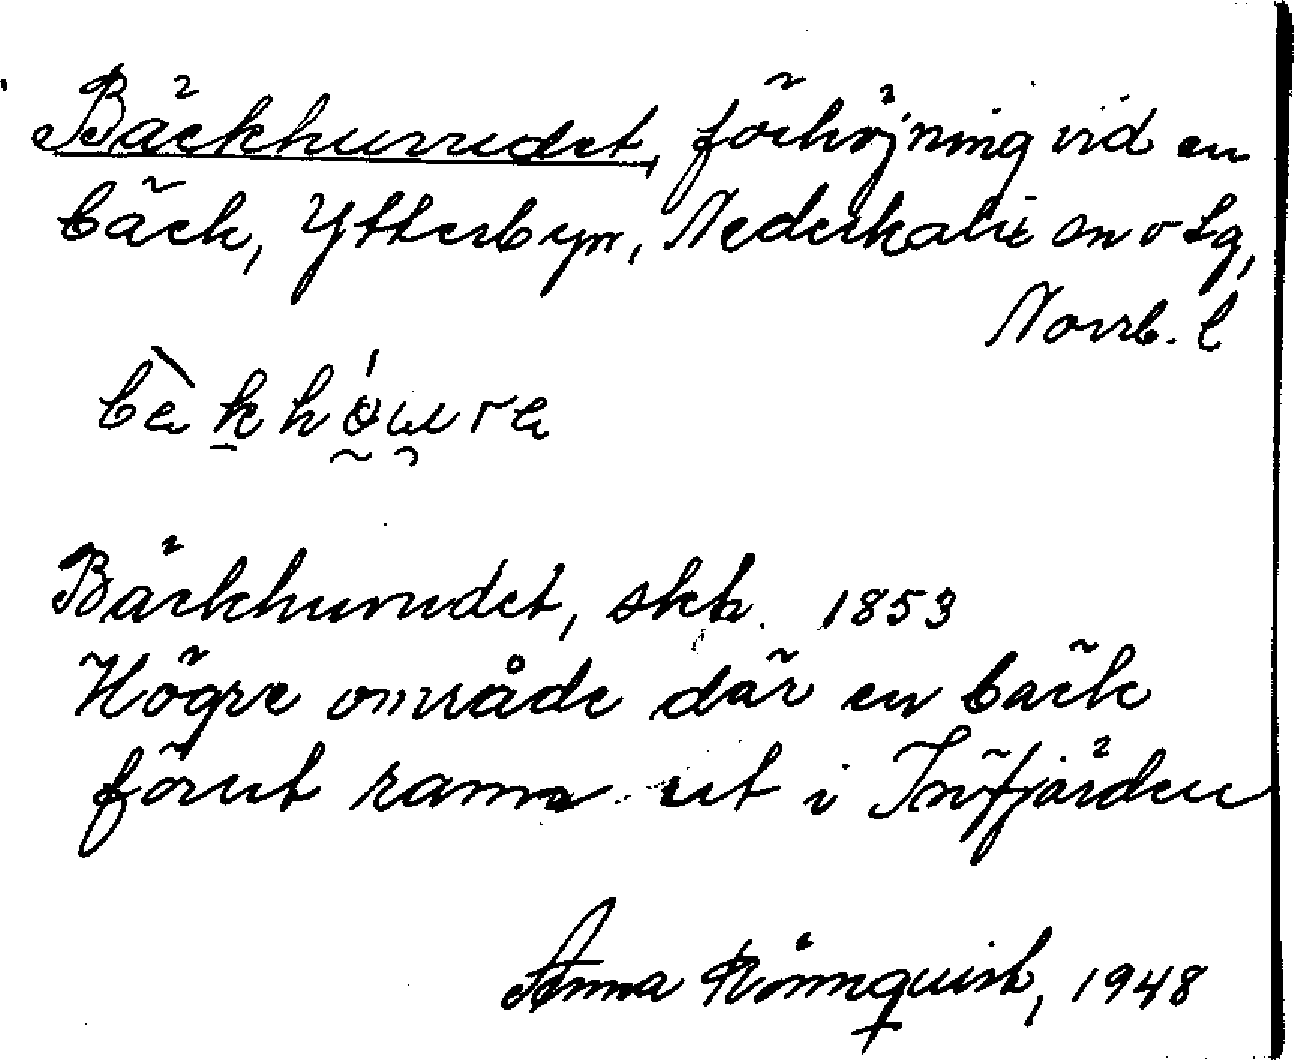 Bäckhurudet, förhöjning vid en
bäck, Ytterbyn, Nederkalix sn o lg,
Norrb. l
Bäckhurudet, skb. 1853
Högre område där en bäck
förut rann ut i Inöfjärden
Anna Rönnquist, 1948